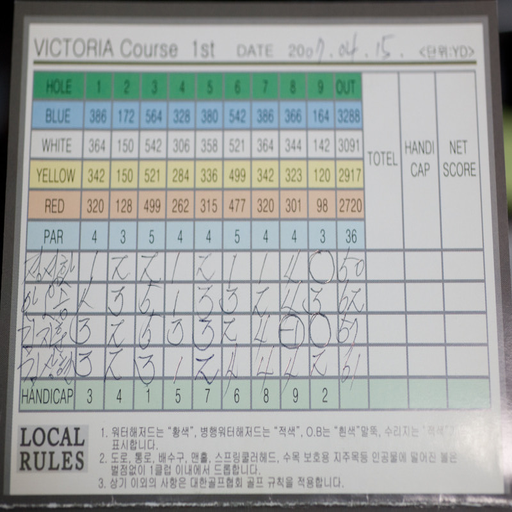 VICTORIA Course 1st DATE 2007.04.15. <단위:YD>
HOLE 1 2 3 4 5 6 7 8 9 OUT TOTEL HANDI CAP NET SCORE
BLUE 386 172 564 328 380 542 386 366 164 3288
WHITE 364 150 542 306 358 521 364 344 142 3091
YELLOW 342 150 521 284 336 499 342 323 120 2917
RED 320 128 499 262 315 477 320 301 98 2720
PAR 4 3 5 4 4 5 4 4 3 36
1 2 2 1 2 1 1 4 0 50
4 3 5 1 3 3 2 4 3
3 2 3 3 3 2 4 0
3 2 3 1 2 4 4 4 2
HANDICAP 3 4 1 5 7 6 8 9 2
LOCAL RULES
1. 워터해저드는 "황색", 병행워터해저드는 "적색", O.B는 "흰색"말뚝, 수리지는
표시합니다.
2. 도로, 통로, 배수구, 맨홀, 스프링쿨러헤드, 수목 보호용 지주목등 인공물에 떨어진 볼은
벌점없이 1클럽 이내에서 드롭합니다.
3. 상기 이외의 사항은 대한골프협회 골프 규칙을 적용합니다.